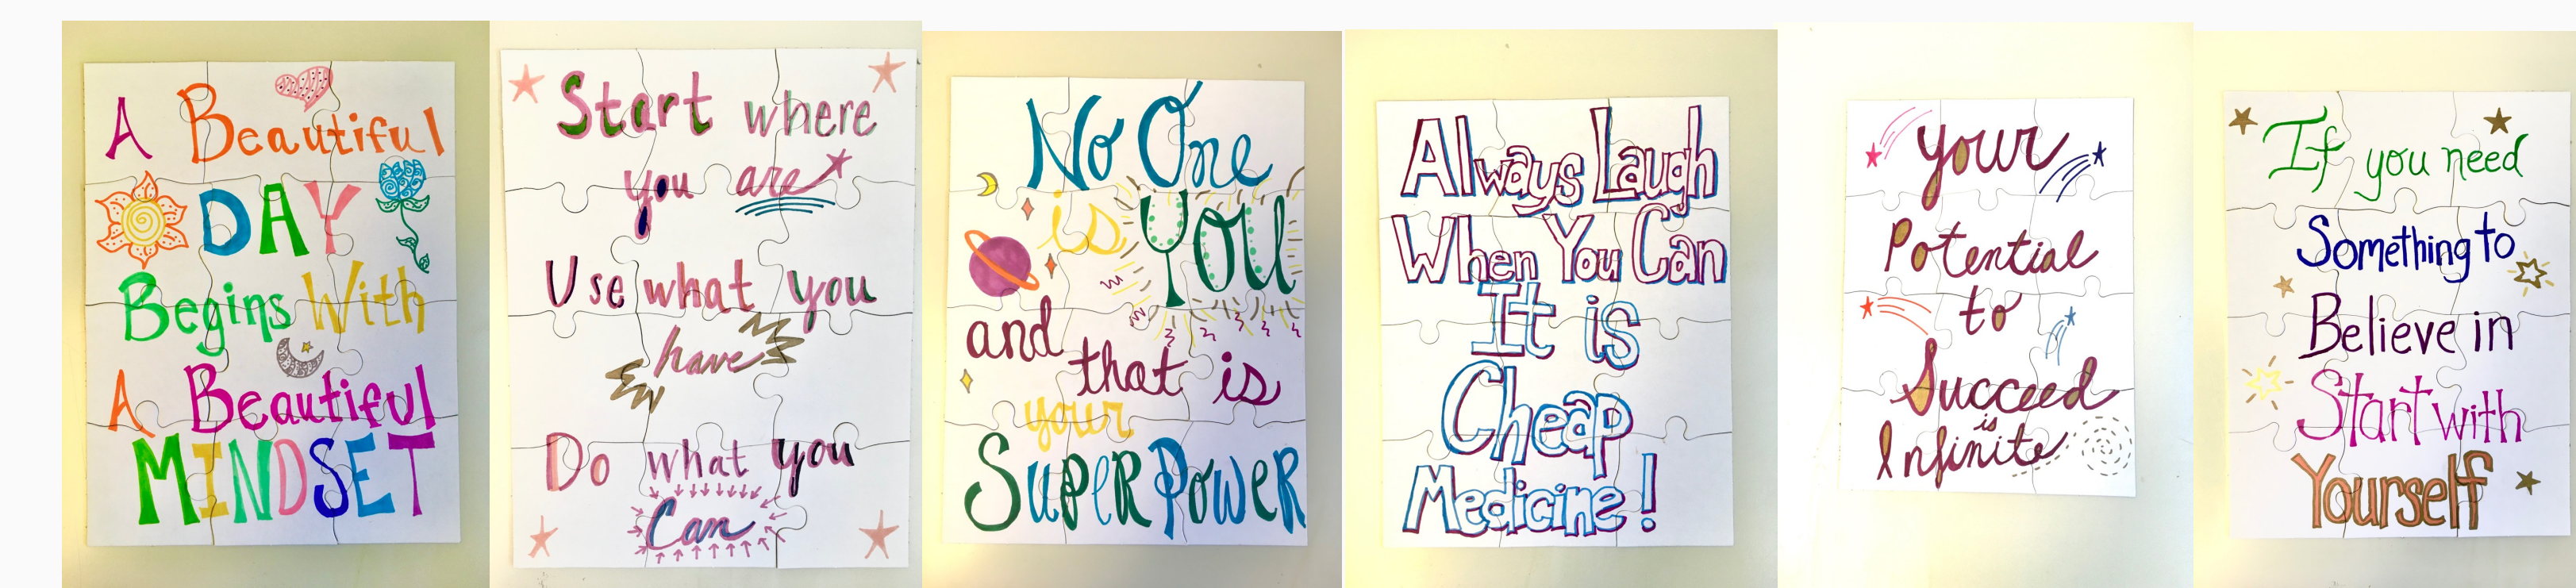 A Beautiful
DAY
Begins With
A Beautiful
MINDSET
Start where
you are
Use what you
have
Do what you
Can
No One
is you
and
that is
your
SUPERPOWER
Always Laugh
When You Can
It is
Cheap
Medicine!
your
Potential
to
Succeed
is
Infinite
If you need
Something to
Believe in
Start with
Yourself